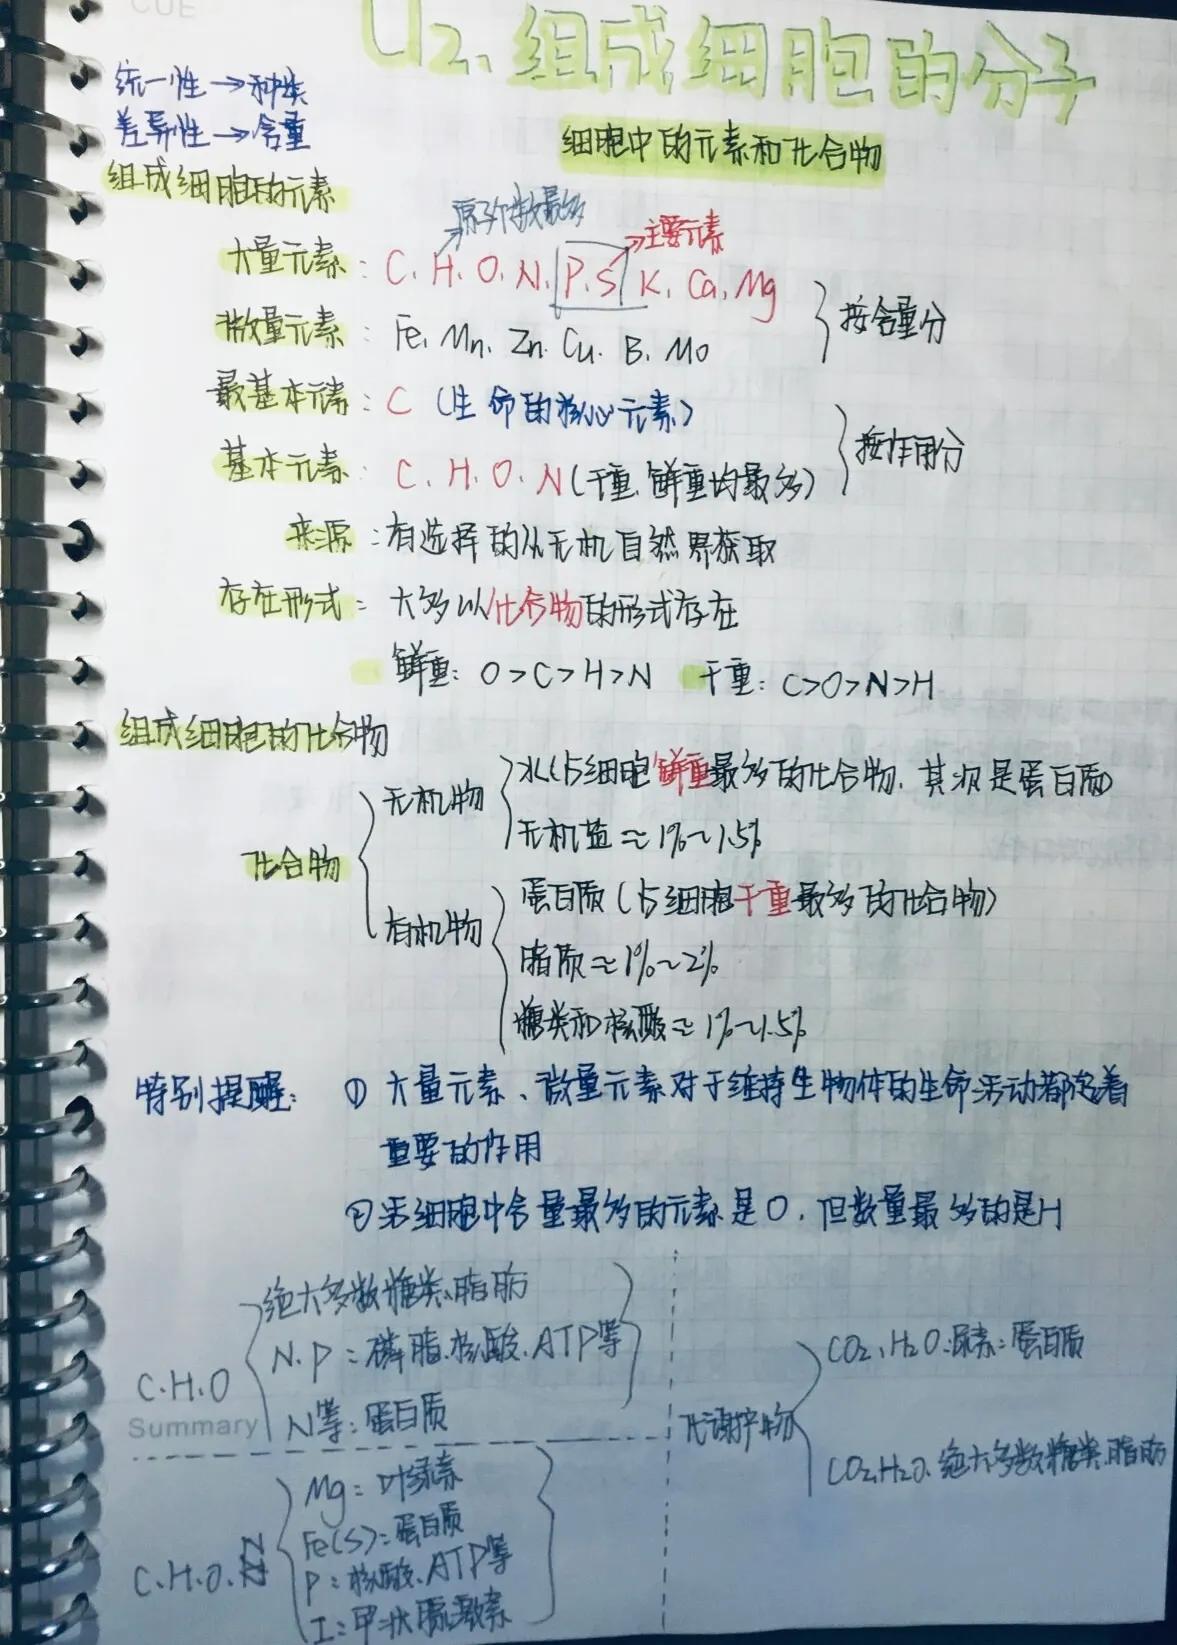 CUE
U2、组成细胞的分子
统一性→种类
差异性→含量
细胞中的元素和化合物
组成细胞的元素
原子个数最多
主要元素
大量元素：C.H.O.N.P.S K.Ca.Mg
微量元素：Fe.Mn.Zn.Cu.B.Mo
按含量分
最基本元素：C（生命的核心元素）
基本元素：C.H.O.N（干重.鲜重均最多）
按作用分
来源：有选择的从无机自然界获取
存在形式：大多以化合物的形式存在
鲜重：O>C>H>N 干重：C>O>N>H
组成细胞的化合物
化合物
无机物
水（占细胞鲜重最多的化合物.其次是蛋白质）
无机盐≈1%~1.5%
有机物
蛋白质（占细胞干重最多的化合物）
脂质≈1%~2%
糖类和核酸≈1%~1.5%
特别提醒：①大量元素、微量元素对于维持生物体的生命活动都起着
重要的作用
②活细胞中含量最多的元素是O.但数量最多的是H
C.H.O
绝大多数糖类.脂肪
N.P：磷脂.核酸.ATP等
N等：蛋白质
Summary
代谢产物
CO2.H2O.尿素：蛋白质
CO2.H2O.绝大多数糖类.脂肪
C.H.O.N
Mg：叶绿素
Fe(S)：蛋白质
P：核酸.ATP等
I：甲状腺激素